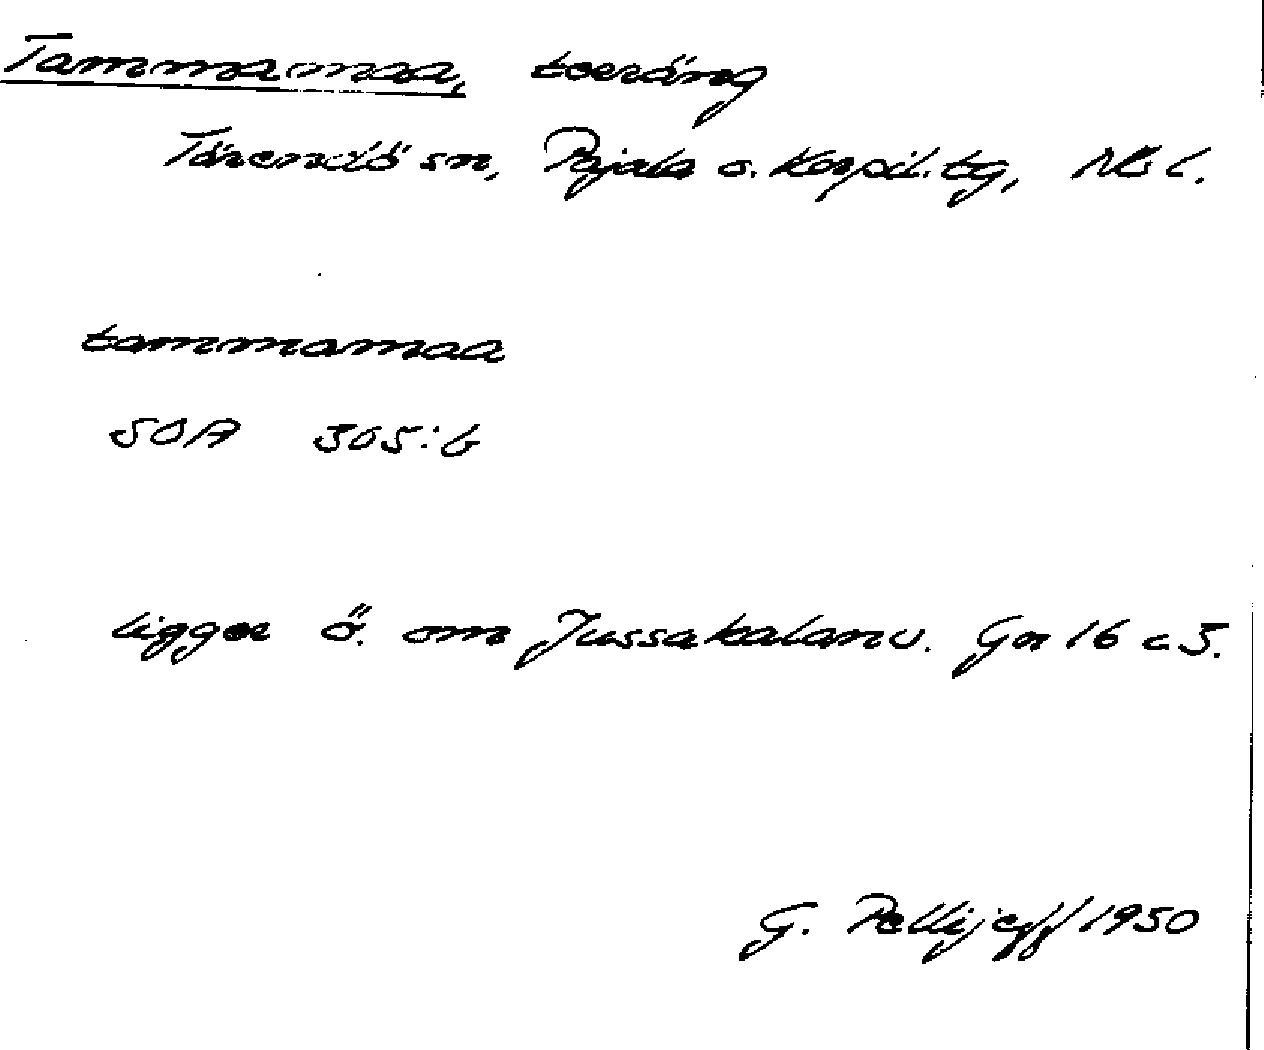 Tammamaa, toeräng
Tärendö sn, Pajala o. Korpil. tg, Nb l.
tammamaa
SOA 305:6
ligger ö. om Jussakalanv. Gr 16 c 3.
G. Pellijeff 1950